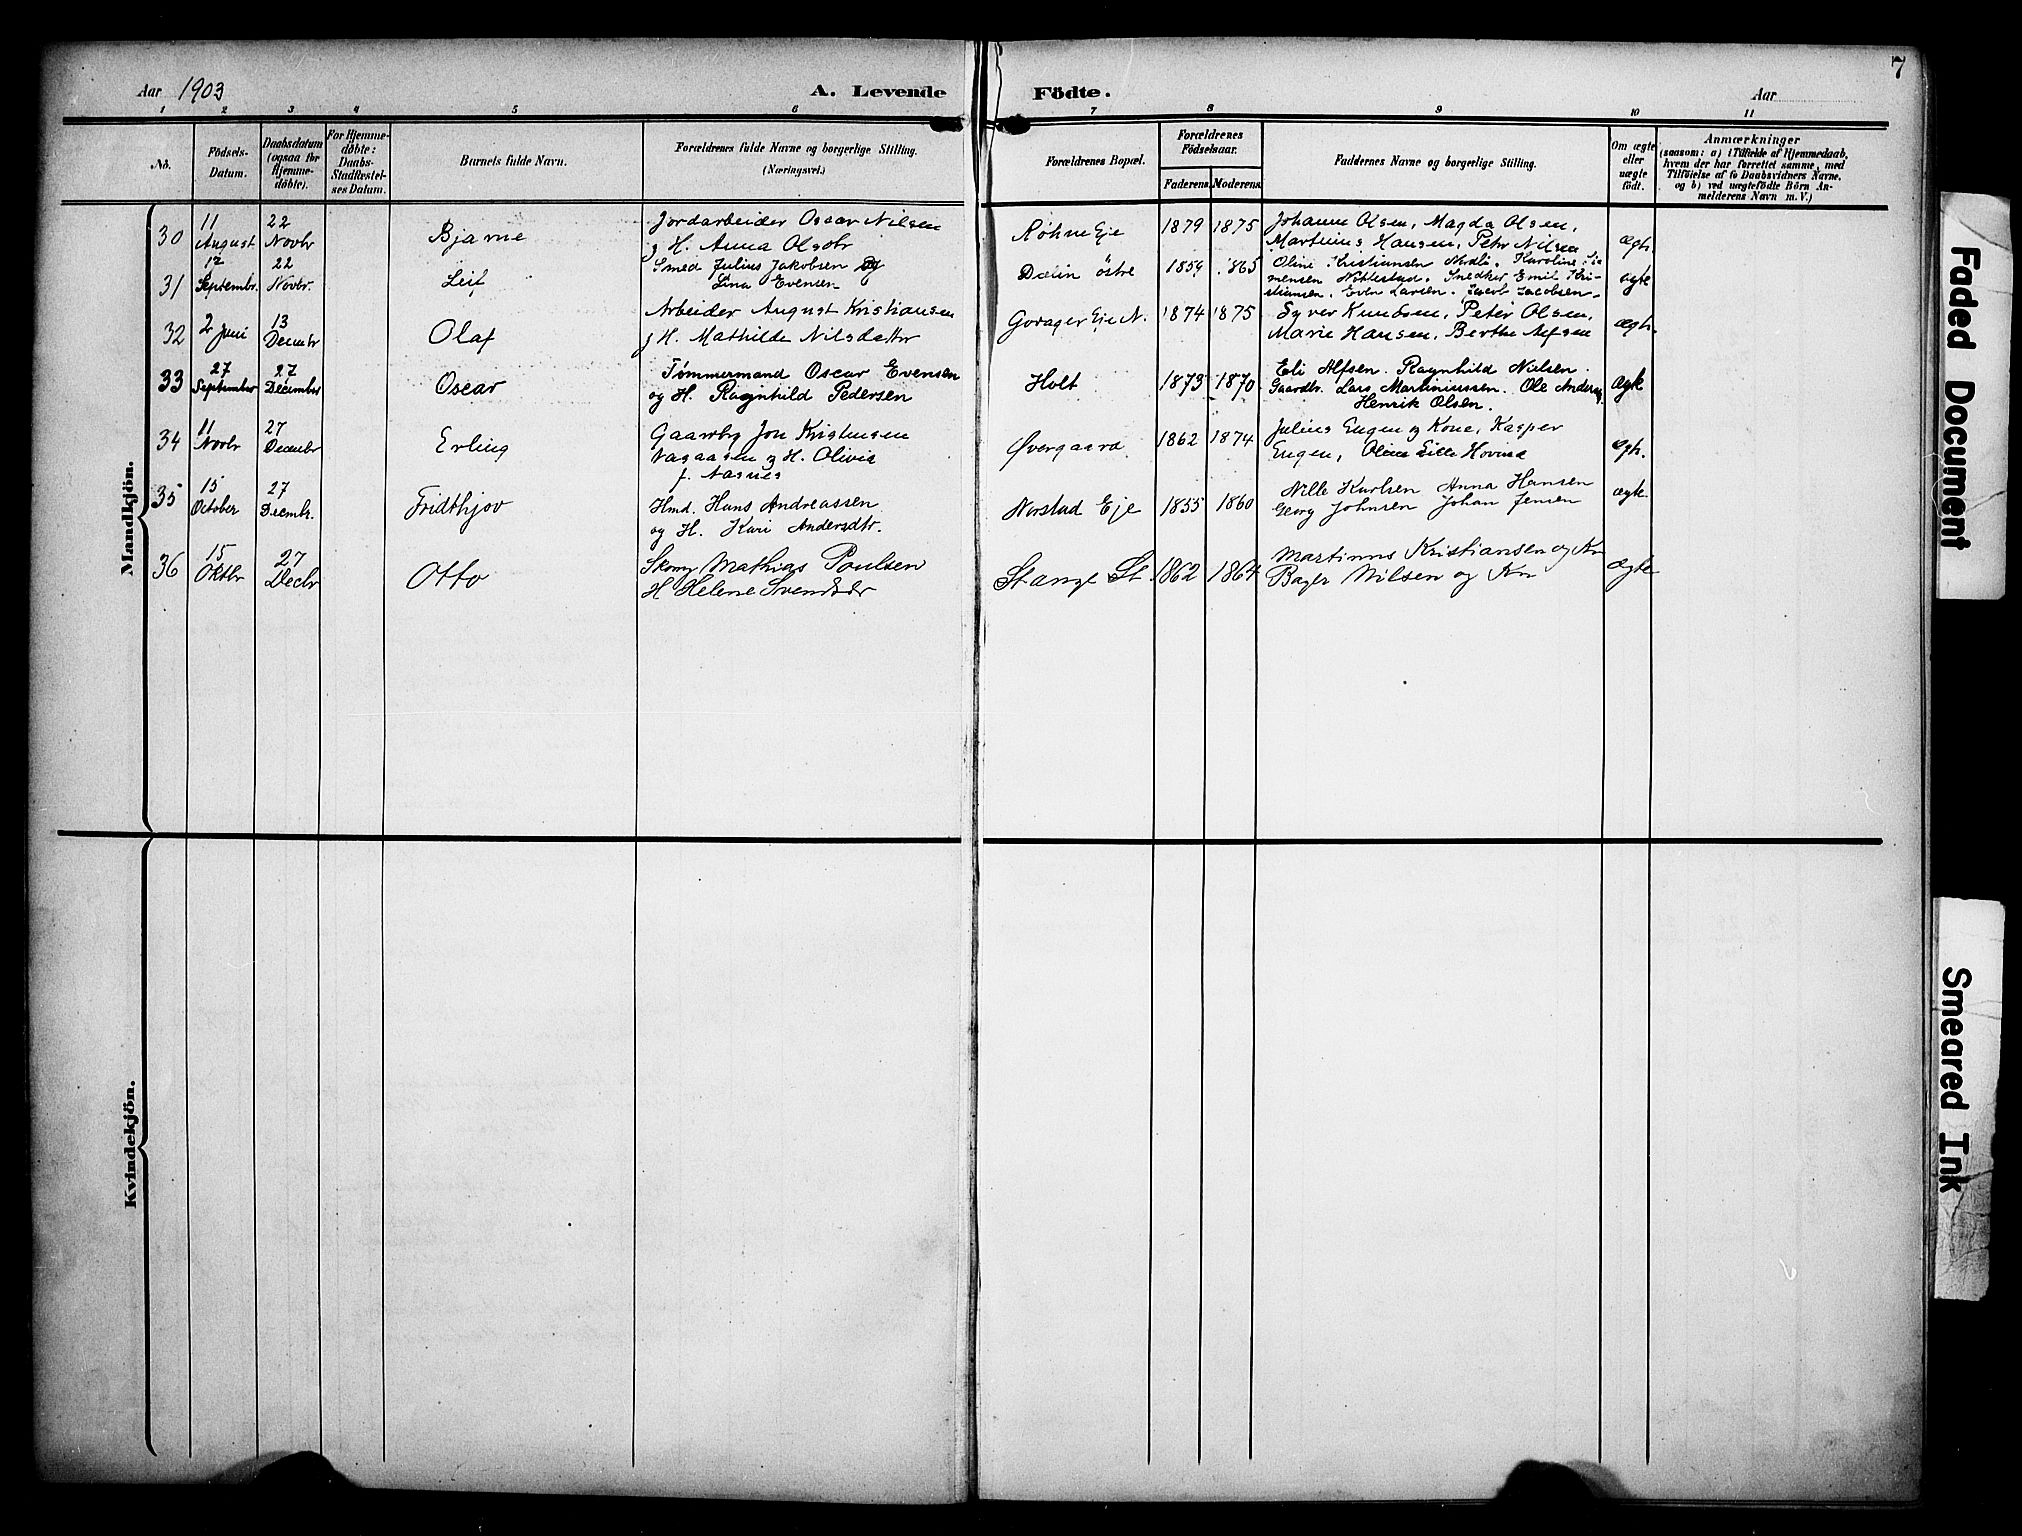 7
Aar 1903
A. Levende Födte.
Aar
1 2 3 4 5 6 7 8 9 10 11
No.
Födsels-Datum.
Daabsdatum (ogsaa for Hjemme-döbte).
For Hjemme-döbte: Daabs-Stadfæstel-ses Datum.
Barnets fulde Navn.
Forældrenes fulde Navne og borgerlige Stilling.
(Næringsvei.)
Forældrenes Bopæl.
Forældrenes Födselsaar.
Faderens. Moderens.
Faddernes Navne og borgerlige Stilling.
Om ægte eller uægte födt.
Anmærkninger
(saasom: a) i Tilfælde af Hjemmedaab,
hvem der har forrettet samme, med
Tilföielse af to Daabsvidners Navne,
og b) ved uægtefödte Börn An-
melderens Navn m. V.)
Mandkjön.
30
11 August
22 Novbr
Bjarne
Jordarbeider Oscar Nilsen
og H. Anna Olsdtr
Røhne Eje
1879 1875
Johanne Olsen, Magda Olsen,
Martinius Hansen, Petr Nilsen
ægt.
31
12 Septembr.
22 Novbr.
Leif
Smed Julius Jakobsen og
Lina Evensen
Dælin östre
1859 1865
Oline Kristiansen Nordli. Karoline Si-
mensen Nøttestad. Snedker Emil Kri-
stiansen. Even Larsen. Jacob Jacobsen.
ægte
32
2 Juni
13 Decembr
Olaf
Arbeider August Kristiansen
og H. Mathilde Nilsdatter
Gorager Eje N.
1874 1875
Syver Knudsen, Peter Olsen,
Marie Hansen, Berthe Alfsen
ægt.
33
27 September
27 December
Oscar
Tømmermand Oscar Evensen
og H. Ragnhild Pedersen
Holt
1873 1870
Eli Alfsen. Ragnhild Nielsen.
Gaardbr. Lars Martiniussen. Ole Anders
Henrik Olsen.
ægte
34
11 Novbr
27 Decembr
Erling
Gaardbr Jon Kristensen
Vagaasen og H. Olivia
f. Aasnes
Øvergaard
1862 1874
Julius Engen og Kone, Kasper
Engen, Oline Lille Hovind
ægt.
35
15 October
27 Decembr.
Fridthjov
Hmd. Hans Andreassen
og H. Kari Andersdtr.
Norstad Eje
1855 1860
Nille Karlsen Anna Hansen
Georg Johnsen Johan Jensen
ægte.
36
15 Oktbr
27 Decbr
Otto
Skomr Mathias Poulsen
H Helene Svendsdr
Stange St.
1862 1864
Martinus Kristiansen og Kn
Bager Nilsen og Kn
ægte
Kvindekjön.
Faded Document
Smeared Ink